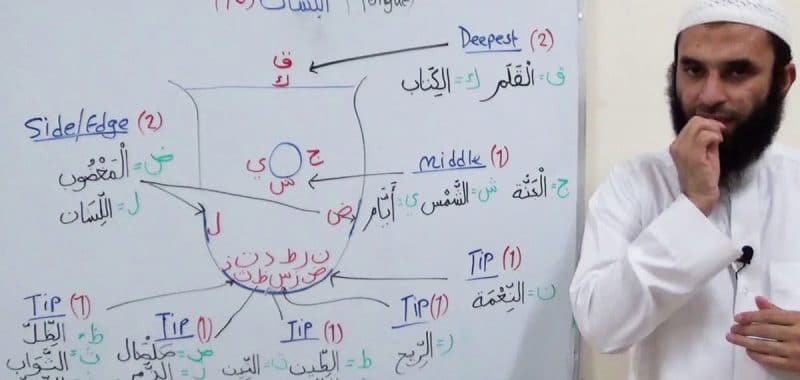 اللسان (10) (Tongue)
Deepest (2)
ق = الْقَلَم ك = الكِتَاب
ق
ك
Side/Edge (2)
ض = الْمَغْضُوب
ل = اللِّسَان
ي ج
ش
Middle (1)
ج = الْجَنَّة ش = الشَّمْس ي = أَيَّام
ل ض
ن ر ط د ت
ص ز س ظ ث
Tip (1)
ن = النِّعْمَة
Tip (1)
ر = الرِّيح
Tip (1)
ط = الطِّين ت = التِّين
Tip (1)
ص = صَلْصَال
Tip (1)
ظ = الظِّلّ
ث = الثَّوَاب